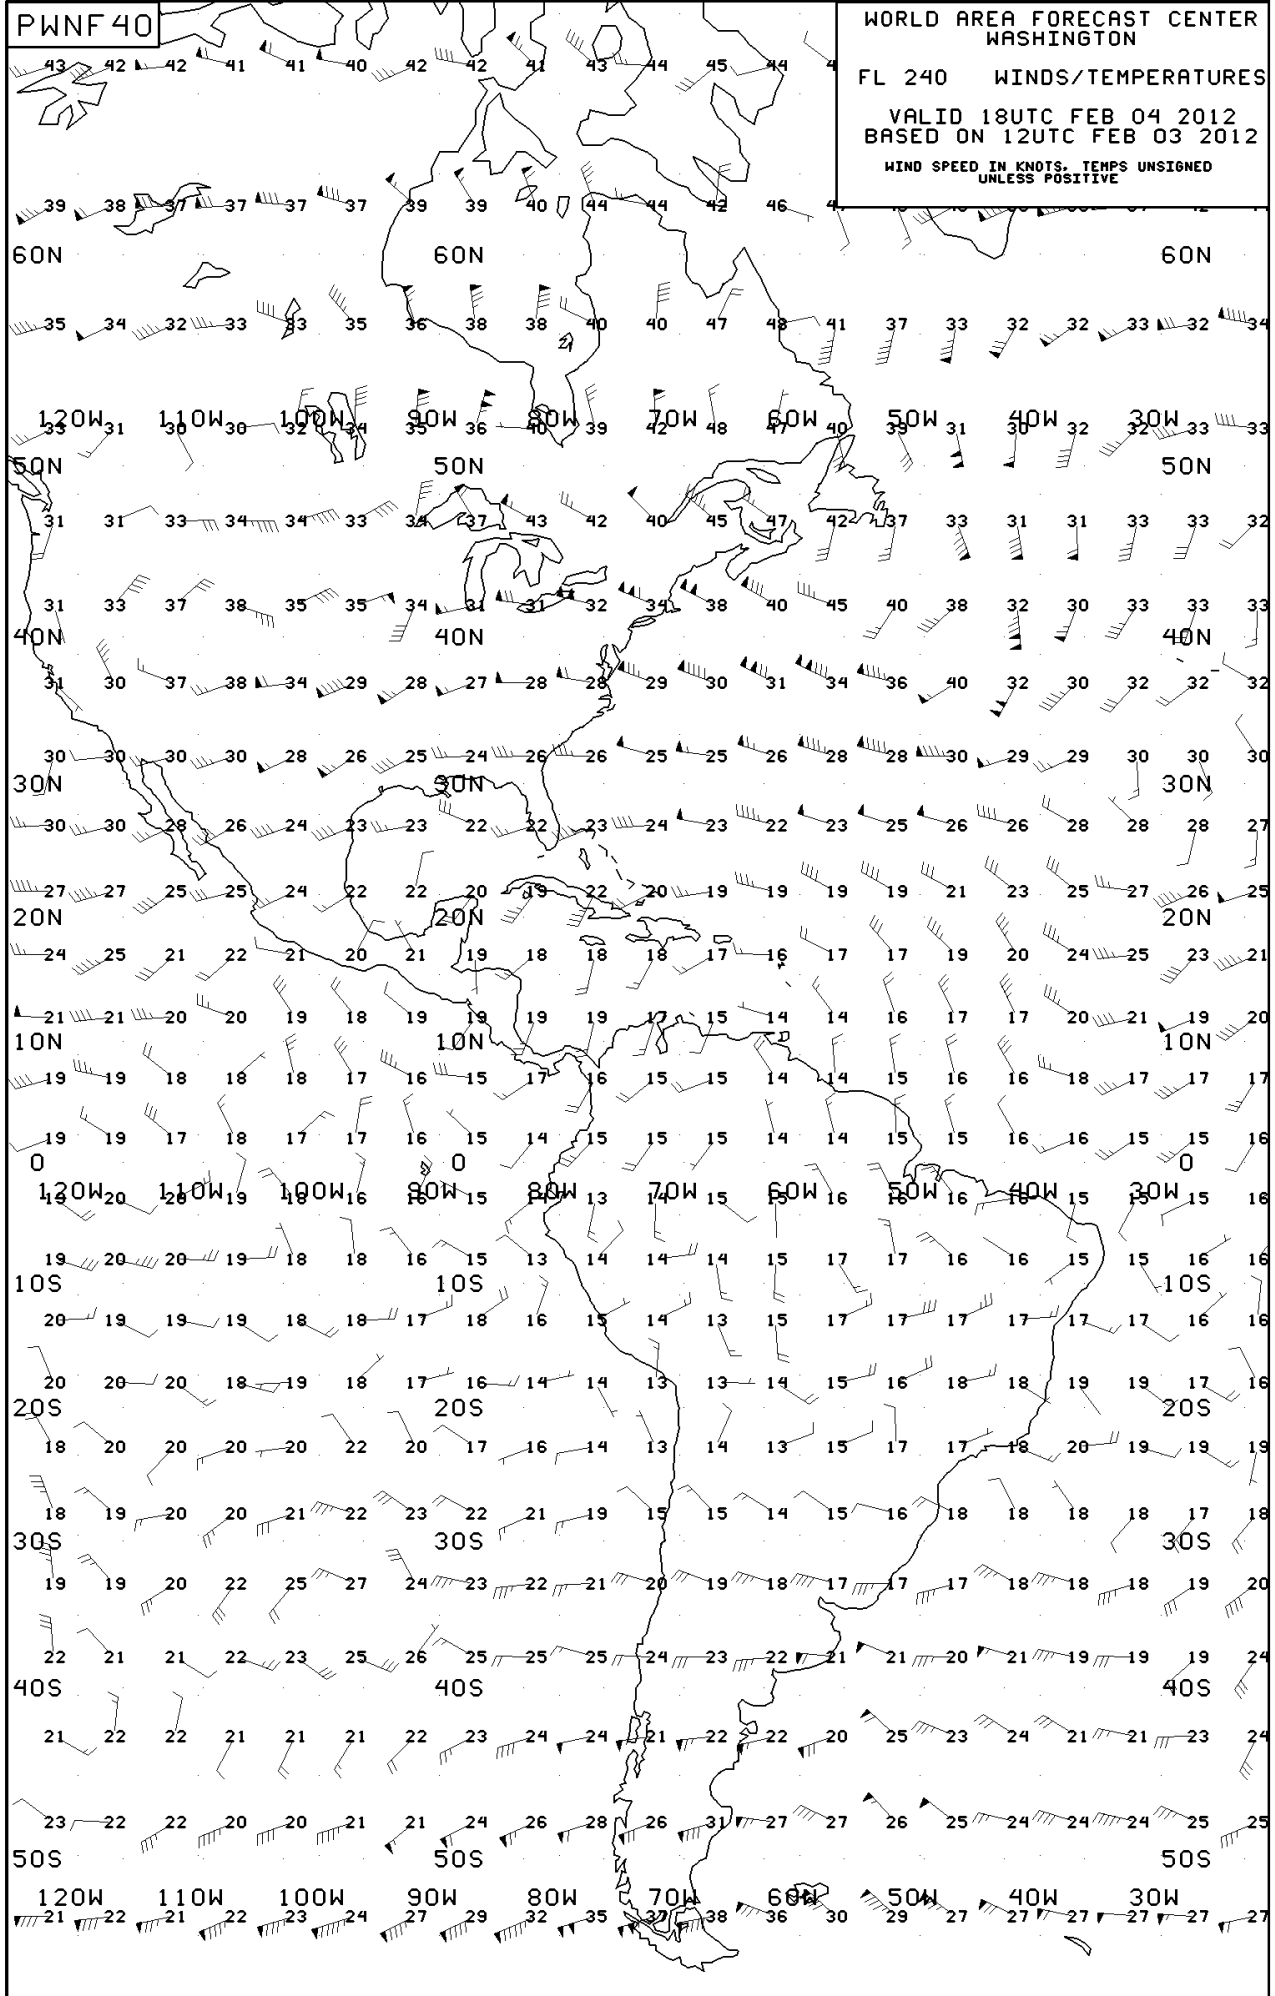 PWNF40
WORLD AREA FORECAST CENTER
WASHINGTON
FL 240 WINDS/TEMPERATURES
VALID 18UTC FEB 04 2012
BASED ON 12UTC FEB 03 2012
WIND SPEED IN KNOTS, TEMPS UNSIGNED
UNLESS POSITIVE
43 42 42 41 41 40 42 42 41 43 44 45 44
39 38 37 37 37 37 39 39 40 44 44 42 46
60N 60N 60N
35 34 32 33 33 35 36 38 38 40 40 47 48 41 37 33 32 32 33 32 34
120W 110W 100W 90W 80W 70W 60W 50W 40W 30W
33 31 30 30 32 34 35 36 40 39 42 48 47 40 39 31 30 32 32 33 33
50N 50N 50N
31 31 33 34 34 33 34 37 43 42 40 45 47 42 37 33 31 31 33 33 32
31 33 37 38 35 35 34 31 31 32 34 38 40 45 40 38 32 30 33 33 33
40N 40N 40N
31 30 37 38 34 29 28 27 28 28 29 30 31 34 36 40 32 30 32 32 32
30 30 30 30 28 26 25 24 26 26 25 25 26 28 28 30 29 29 30 30 30
30N 30N 30N
30 30 28 26 24 23 23 22 22 23 24 23 22 23 25 26 26 28 28 28 27
27 27 25 25 24 22 22 20 19 22 20 19 19 19 19 21 23 25 27 26 25
20N 20N 20N
24 25 21 22 21 20 21 19 18 18 18 17 16 17 17 19 20 24 25 23 21
21 21 20 20 19 18 19 19 19 19 17 15 14 14 16 17 17 20 21 19 20
10N 10N 10N
19 19 18 18 18 17 16 15 17 16 15 15 14 14 15 16 16 18 17 17 17
19 19 17 18 17 17 16 15 14 15 15 15 14 14 15 15 16 16 15 15 16
0 0 0
120W 110W 100W 90W 80W 70W 60W 50W 40W 30W
19 20 20 19 18 16 16 15 14 13 14 15 15 16 16 16 16 15 15 15 16
19 20 20 19 18 18 16 15 13 14 14 14 15 17 17 16 16 15 15 16 16
10S 10S 10S
20 19 19 19 18 18 17 18 16 15 14 13 15 17 17 17 17 17 17 16 16
20 20 20 18 19 18 17 16 14 14 13 13 14 15 16 18 18 19 19 17 16
20S 20S 20S
18 20 20 20 20 22 20 17 16 14 13 14 13 15 17 17 18 20 19 19 19
18 19 20 20 21 22 23 22 21 19 15 15 14 15 16 18 18 18 18 17 18
30S 30S 30S
19 19 20 22 25 27 24 23 22 21 20 19 18 17 17 17 18 18 18 19 20
22 21 21 22 23 25 26 25 25 25 24 23 22 21 21 20 21 19 19 19 24
40S 40S 40S
21 22 22 21 21 21 22 23 24 24 21 22 22 20 25 23 24 21 21 23 24
23 22 22 20 20 21 21 24 26 28 26 31 27 27 26 25 24 24 24 25 25
50S 50S 50S
120W 110W 100W 90W 80W 70W 60W 50W 40W 30W
21 22 21 22 23 24 27 29 32 35 37 38 36 30 29 27 27 27 27 27 27